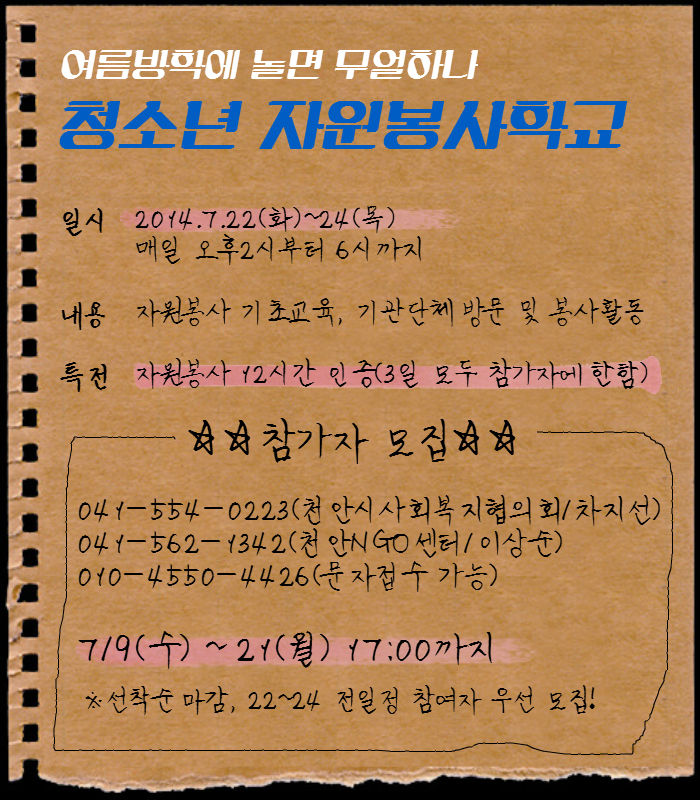 여름방학에 놀면 무얼하나
청소년 자원봉사학교
일시 2014.7.22(화)~24(목)
매일 오후2시부터 6시까지
내용 자원봉사 기초교육, 기관단체 방문 및 봉사활동
특전 자원봉사 12시간 인증(3일 모두 참가자에 한함)
☆☆참가자 모집☆☆
041-554-0223(천안시사회복지협의회/차지선)
041-562-1342(천안NGO센터/이상순)
010-4550-4426(문자접수 가능)
7/9(수) ~ 21(월) 17:00까지
※선착순 마감, 22~24 전일정 참여자 우선 모집!